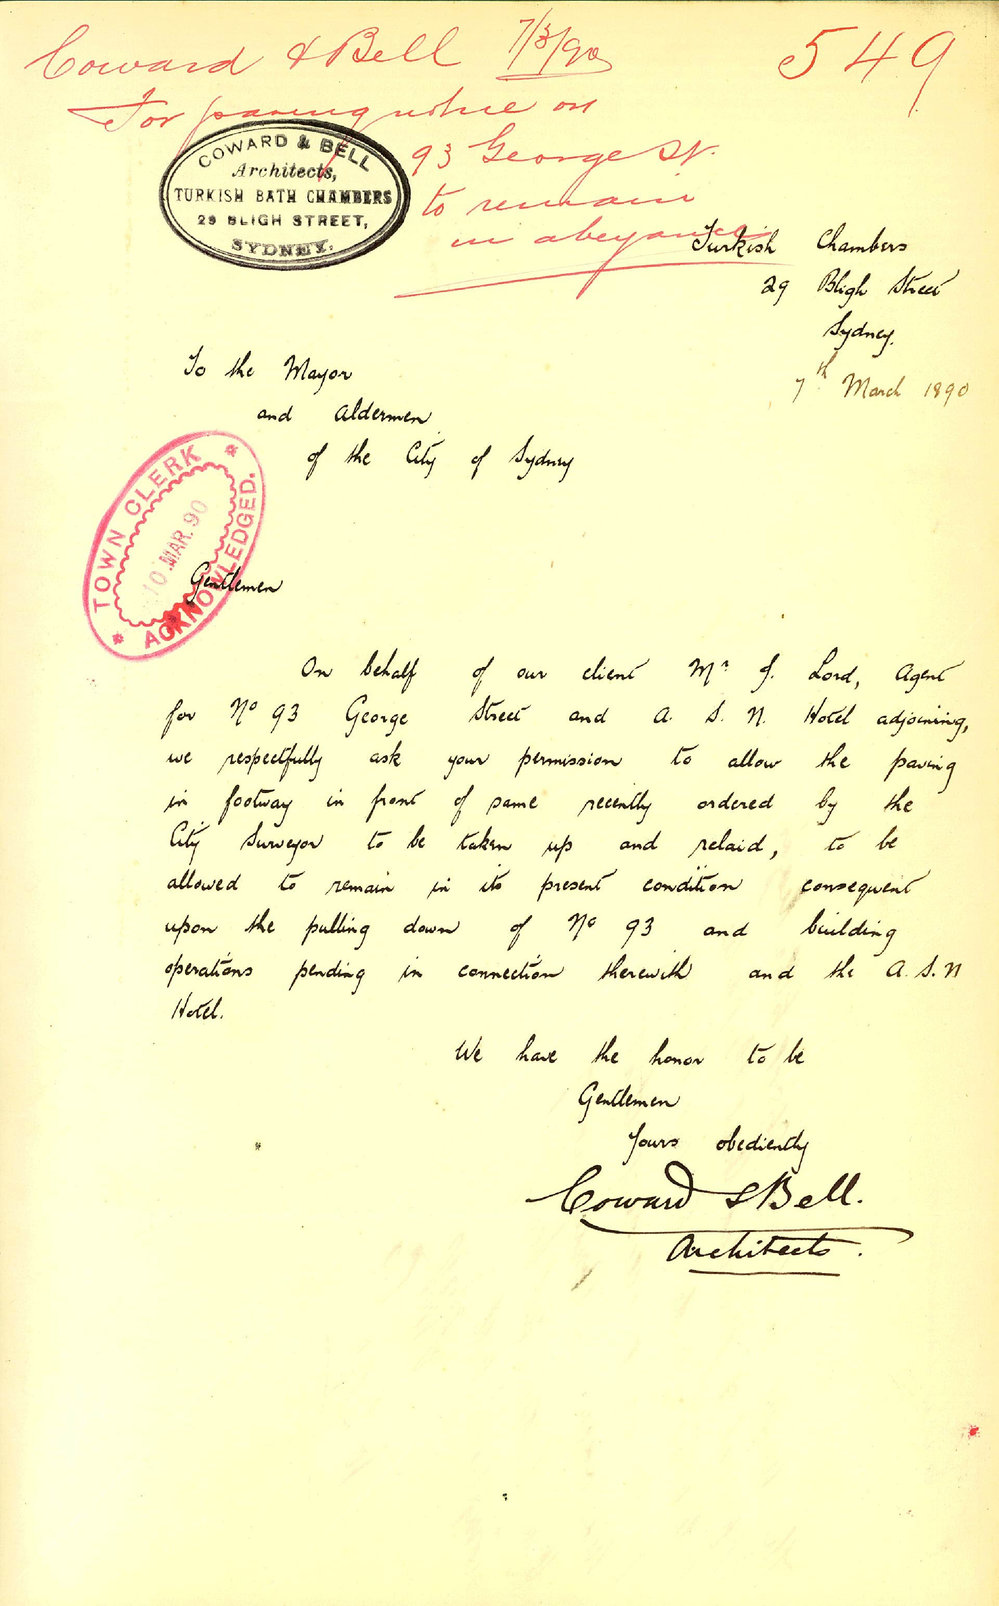 Coward & Bell 7/3/90
549
For paving notice on
93 George St.
to remain
in abeyance
COWARD & BELL
Architects,
TURKISH BATH CHAMBERS
29 BLIGH STREET,
SYDNEY.
Turkish Chambers
29 Bligh Street
Sydney.
7th March 1890
To the Mayor
and Aldermen
of the City of Sydney
TOWN CLERK
10 MAR. 90
ACKNOWLEDGED.
Gentlemen
On behalf of our client Mr J. Lord, Agent
for No 93 George Street and A. S. N. Hotel adjoining,
we respectfully ask your permission to allow the paving
in footway in front of same recently ordered by the
City Surveyor to be taken up and relaid, to be
allowed to remain in its present condition consequent
upon the pulling down of No 93 and building
operations pending in connection therewith and the A. S. N
Hotel.
We have the honor to be
Gentlemen
Yours obediently
Coward & Bell.
Architects.